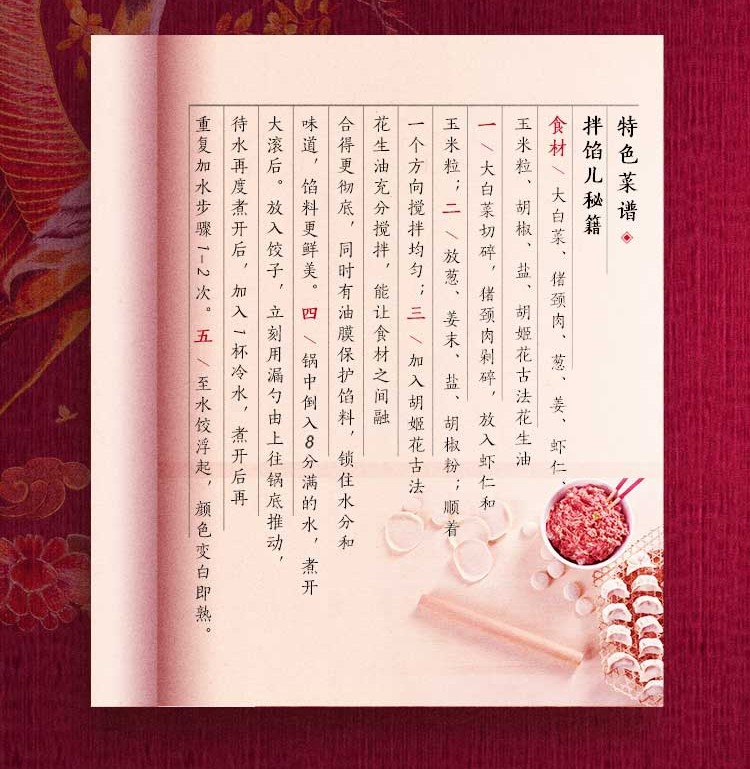 特色菜谱
拌馅儿秘籍
食材/大白菜、猪颈肉、葱、姜、虾仁、
玉米粒、胡椒、盐、胡姬花古法花生油
一/大白菜切碎，猪颈肉剁碎，放入虾仁和
玉米粒；二/放葱、姜末、盐、胡椒粉；顺着
一个方向搅拌均匀；三/加入胡姬花古法
花生油充分搅拌，能让食材之间融
合得更彻底，同时有油膜保护馅料，锁住水分和
味道，馅料更鲜美。四/锅中倒入8分满的水，煮开
大滚后。放入饺子，立刻用漏勺由上往锅底推动，
待水再度煮开后，加入1杯冷水，煮开后再
重复加水步骤1-2次。五/至水饺浮起，颜色变白即熟。